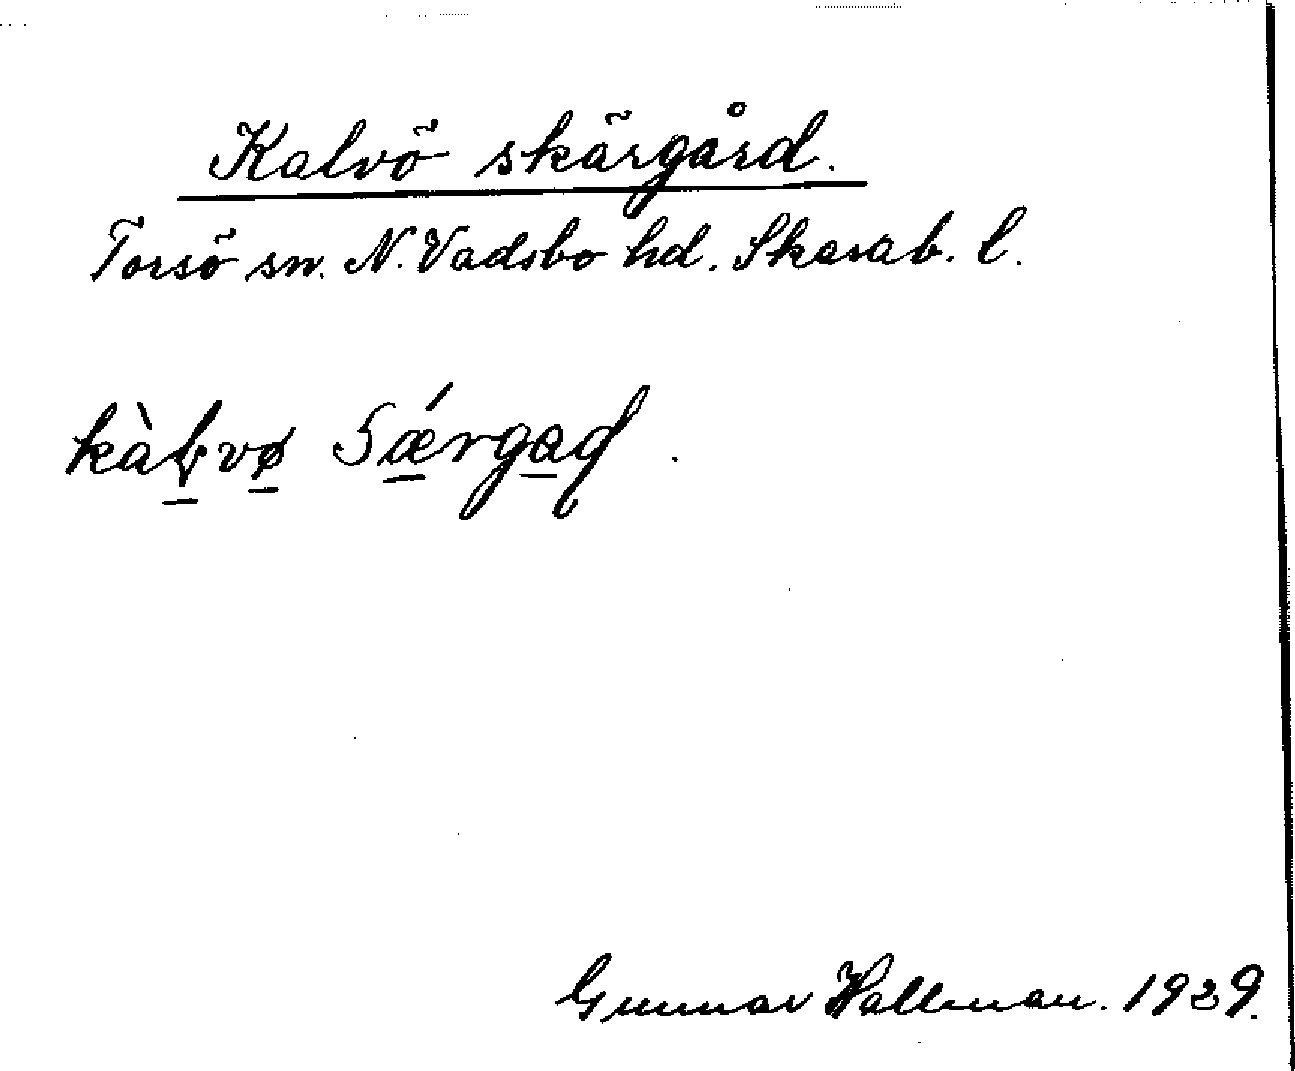 Kalvö skärgård.
Torsö sn. N. Vadsbo hd. Skarab. l.
kàɫ̠vø̠ Sǽ̠rga̠ɖ.
Gunnar Hallman. 1939.